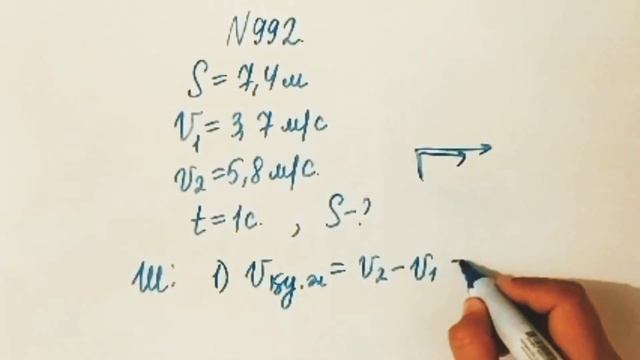 N992.
S = 7,4 м
V₁ = 3,7 м/с
V₂ = 5,8 м/с.
t = 1с. , S-?
Ш: 1) Vқу.ж = V₂ - V₁ -